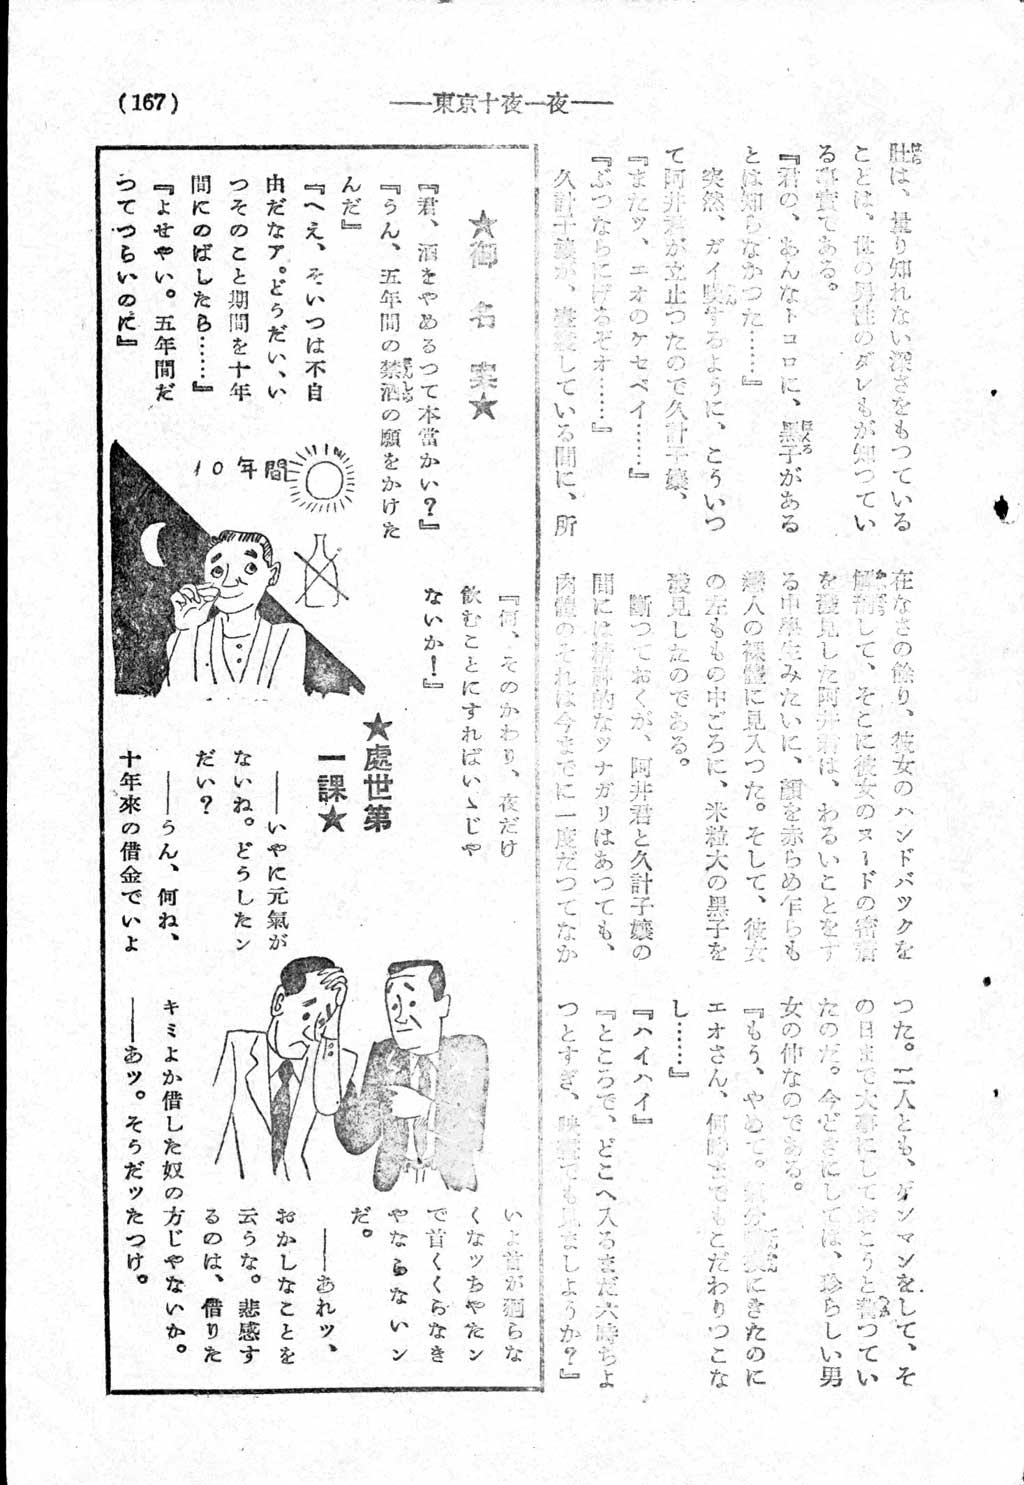 (167)
――東京十夜一夜――
肚は、量り知れない深さをもつている
ことは、世の男性のダレもが知つてい
る事實である。
『君の、あんなトコロに、黒子がある
とは知らなかつた……』
突然、ガイ嘆するように、こういつ
て阿井君が立止つたので久計子孃、
『またッ、エオのケセペイ……』
『ぶつならにげるぞオ……』
久計子孃が、 している間に、所
在なさの餘り、彼女のハンドバツクを
解剖して、そこに彼女のヌードの密着
を發見した阿井君は、わるいことをす
る中學生みたいに、顏を赤らめ乍らも
戀人の裸體に見入つた。そして、彼女
の左ももの中ごろに、米粒大の黒子を
發見したのである。
斷つておくが、阿井君と久計子孃の
間には精神的なツナガリはあつても、
肉體のそれは今までに一度だつてなか
つた。二人とも、ゲンマンをして、そ
の日まで大事にしておこうと誓つてい
たのだ。今どきにしては、珍らしい男
女の仲なのである。
『もう、やめて。氣分 にきたのに
エオさん、何時までもこだわりつこな
し……』
『ハイハイ』
『ところで、どこへ入るまだ六時ちよ
つとすぎ、映畫でも見ましようか？』
★御名案★
『君、酒をやめるつて本當かい？』
『うん、五年間の禁酒の願をかけた
んだ』
『へえ、そいつは不自
由だなア。どうだい、い
つそのこと期間を十年
間にのばしたら……』
『よせやい。五年間だ
つてつらいのに』
10年間
『何、そのかわり、夜だけ
飲むことにすればいゝじや
ないか！』
★處世第
一課★
――いやに元氣が
ないね。どうしたン
だい？
――うん、何ね、
十年來の借金でいよ
いよ首が廻らな
くなッちやたン
で首くくらなき
やならないン
だ。
――あれッ、
おかしなことを
云うな。悲感す
るのは、借りた
キミよか借した奴の方じやないか。
――あッ。そうだッたつけ。